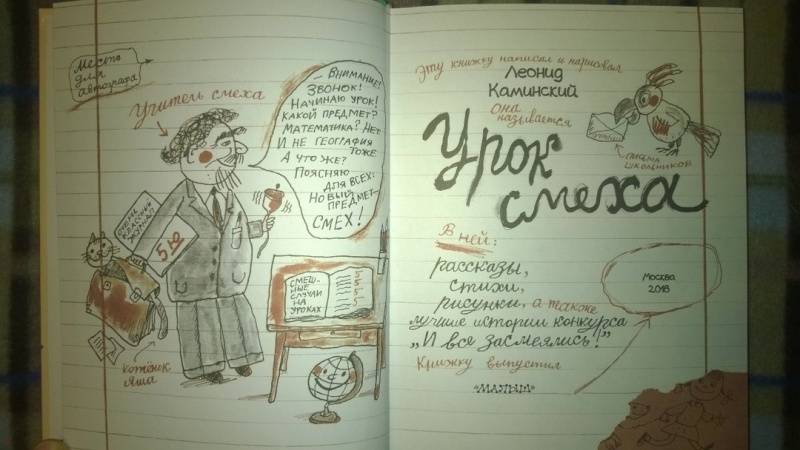 Место
для
автографа
Учитель смеха
— Внимание!
Звонок!
Начинаю урок!
Какой предмет?
Математика? Нет.
И не география
тоже
А что же?
Поясняю
для всех:
Новый
предмет—
смех!
очень
классный
журнал
5 Ю
котёнок
Яша
Смеш-
ные
случаи
на
уроках
Эту книжку написал и нарисовал
Леонид
Каминский
Она
называется
Урок
смеха
письма
школьников
В ней:
рассказы,
стихи,
рисунки, а также
лучшие истории конкурса
„И все засмеялись!"
Книжку выпустил
«Малыш»
Москва
2018